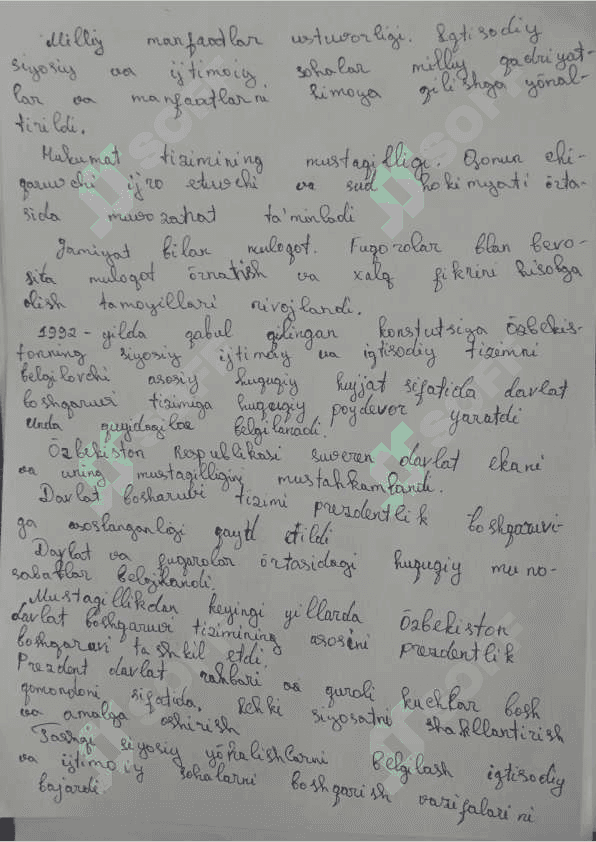 Milliy manfaatlar ustuvorligi. Iqtisodiy
siyosiy va ijtimoiy sohalar milliy qadriyat-
lar va manfaatlarni himoya qilishga yŏnal-
tirildi.
Hukumat tizimining mustaqilligi. Qonun chi-
qaruvchi ijro etuvchi va sud hokimyati ŏrta-
sida muvozanat ta'minladi
Jamiyat bilan muloqot. Fuqorolar blan bevo-
sita muloqot ŏrnatish va xalq fikrini hisobga
olish tamoyillari rivojlandi.
1992-yilda qabul qilingan konstutsiya Ŏzbekis-
tonning siyosiy ijtimoiy va iqtisodiy tizimni
belgilovchi asosiy huquqiy hujjat sifatida davlat
boshqaruvi tizimiga huquqiy poydevor yaratdi
Unda quyidagilar belgilanadi.
Ŏzbekiston Respublikasi suveren davlat ekani
va uning mustaqilligini mustahkamlandi.
Davlat bosharuvi tizimi prezdentlik boshqaruvi-
ga asoslanganligi qayd etildi
Davlat va fuqarolar ŏrtasidagi huquqiy muno-
sabatlar belgilandi.
Mustaqillikdan keyingi yillarda Ŏzbekiston
davlat boshqaruvi tizimining asosini prezdentlik
boshqaruvi tashkil etdi.
Prezdent davlat rahbari va qurolli kuchlar bosh
qomondoni sifatida. Ichki siyosatni shakllantirish
va amalga oshirish
Tashqi siyosiy yŏnalishlarni belgilash iqtisodiy
va ijtimoiy sohalarni boshqarish vazifalarini
bajardi.
SOFF
SOFF
SOFF
SOFF
SOFF
SOFF